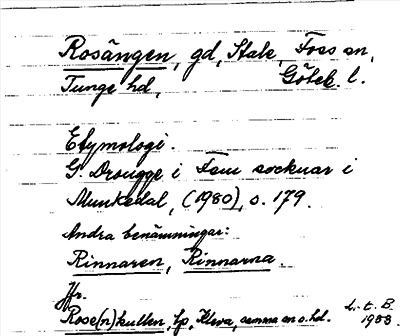 Rosängen, gd, Stale, Foss sn,
Tunge hd, Göteb. l.
Etymologi.
G Drougge i Fem socknar i
Munkedal, (1980), s. 179.
Andra benämningar:
Rinnaren, Rinnarna.
Jfr.
Rose(n)kullen, lp, Kleva, samma sn o. hd.
L. E. B.
1988.